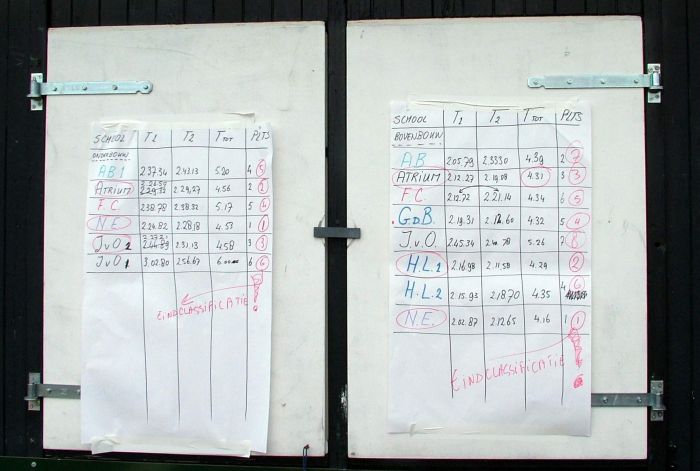 SCHOOL T1 T2 TTOT PLTS
ONDERBOUW
AB1 2.37.34 2.43.13 5.20 4 5
ATRIUM 2.29,27 4.56 2 2
F.C. 2.38.78 2.38.32 5.17 5 4
N.E. 2.24.82 2.28,18 4.53 1 1
J.v.O. 2 2.31.13 4.58 3 3
J.v.O. 1 3.02.80 2.56.67 6 6
EINDCLASSIFICATIE
SCHOOL T1 T2 TTOT PLTS
BOVENBOUW
AB 2.05.79 2.33.30 4.39 2 7
ATRIUM 2.12.27 2.19.08 4.31 3 3
F.C. 2.12.72 2.21.14 4.34 6 5
GDB 2.19.31 4.32 5 4
J.v.O. 2.45.34 4.78 5.26 7 8
H.L.1 2.16.98 2.11.58 4.29 2
H.L.2 2.15.93 2.18.70 4.35 4 6
N.E. 2.02.87 2.12.65 4.16 1 1
EINDCLASSIFICATIE